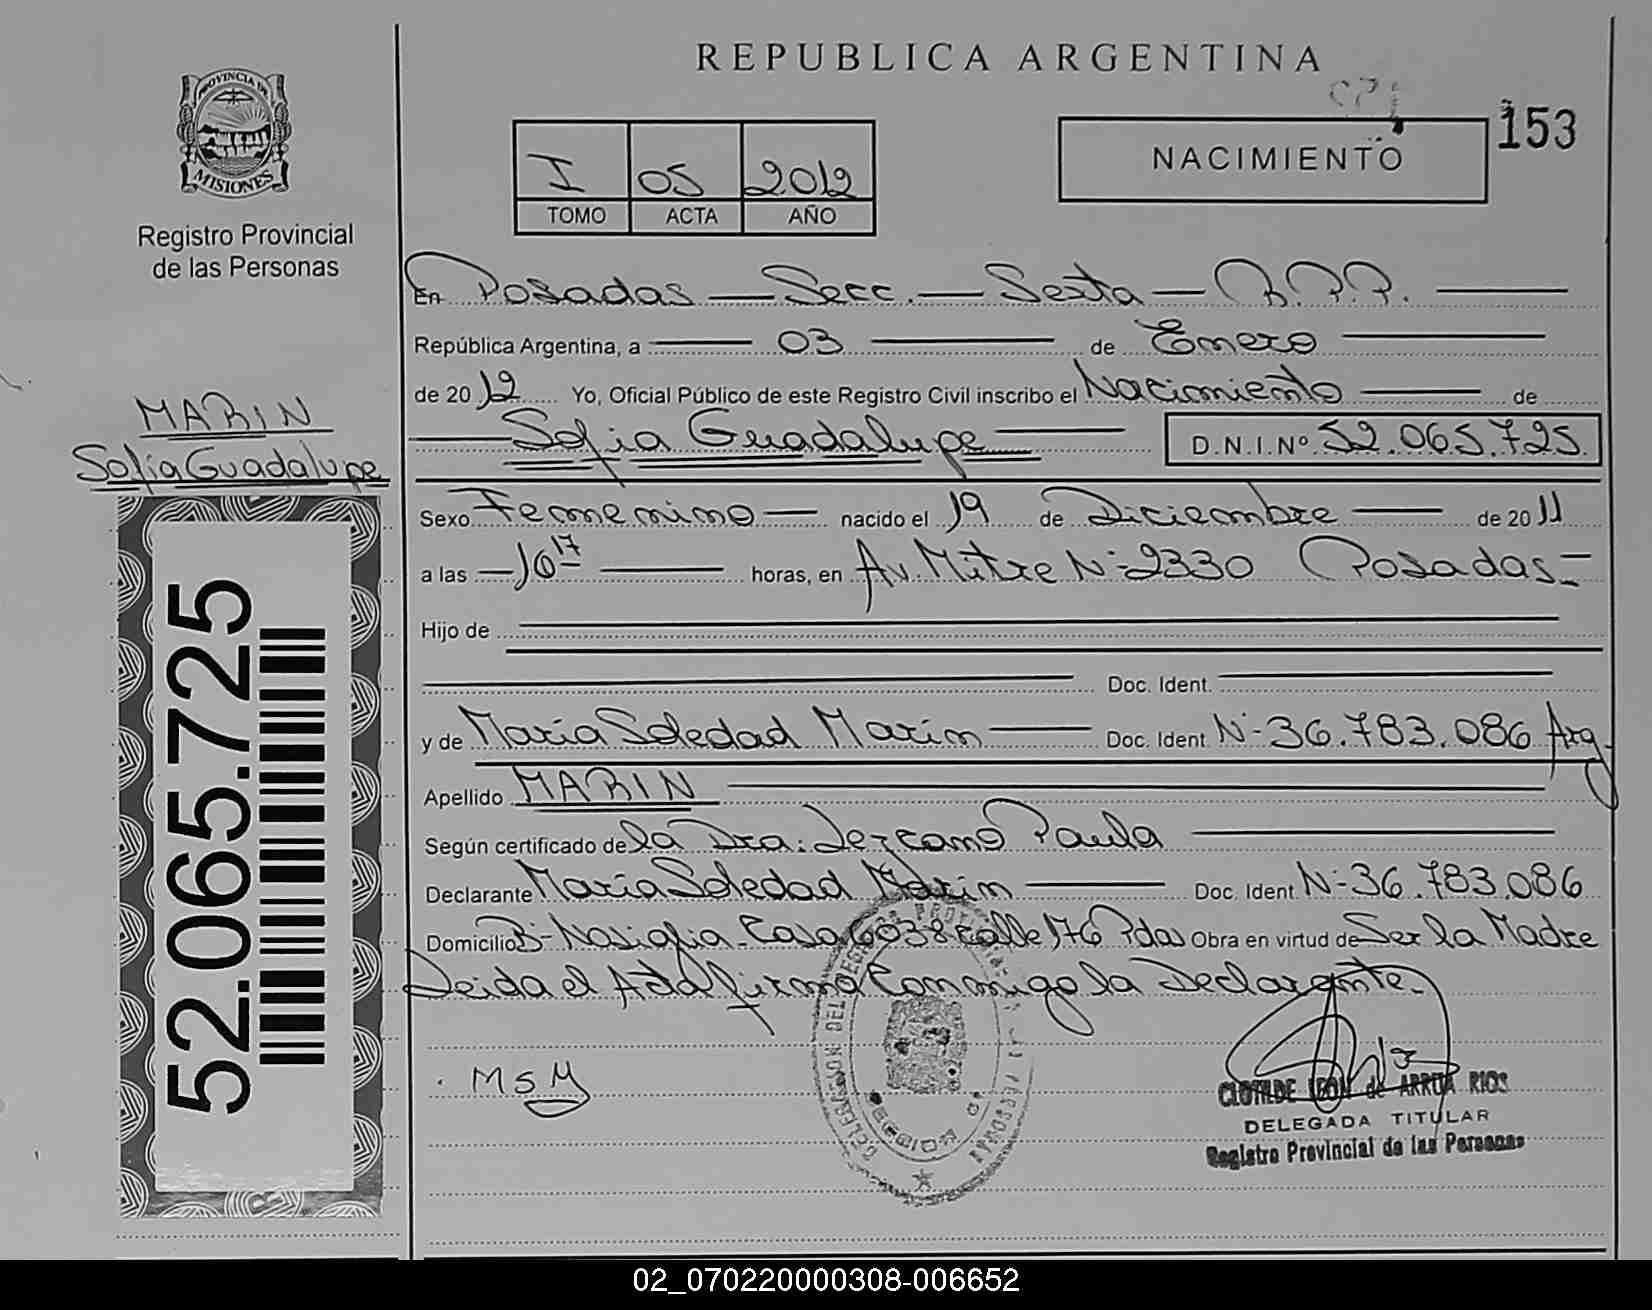 REPUBLICA ARGENTINA
PROVINCIA DE
MISIONES
Registro Provincial
de las Personas
I 05 2012
TOMO ACTA AÑO
NACIMIENTO
153
MARIN
Sofia Guadalupe
52.065.725
En Posadas — Secc. — Sexta — R.P.P.
República Argentina, a 03 de Enero
de 2012 Yo, Oficial Público de este Registro Civil inscribo el Nacimiento de
Sofia Guadalupe D.N.I.Nº 52.065.725
Sexo Femenino nacido el 19 de Diciembre de 2011
a las 16 17 horas, en Av. Mitre Nº 2330 Posadas
Hijo de
Doc. Ident.
y de María Soledad Marin Doc. Ident. Nº 36.783.086 Arg.
Apellido MARIN
Según certificado de la Dra: Lezcano Paula
Declarante María Soledad Marin Doc. Ident Nº 36.783.086
Domicilio Bº Nasigfia Casa 6038 calle 176 Pdas Obra en virtud de Ser la Madre
Leida el Acta firma Conmigo la Declarante.
MSM
CLOTILDE LEON de ARRUA RIOS
DELEGADA TITULAR
Registro Provincial de las Personas
02_070220000308-006652